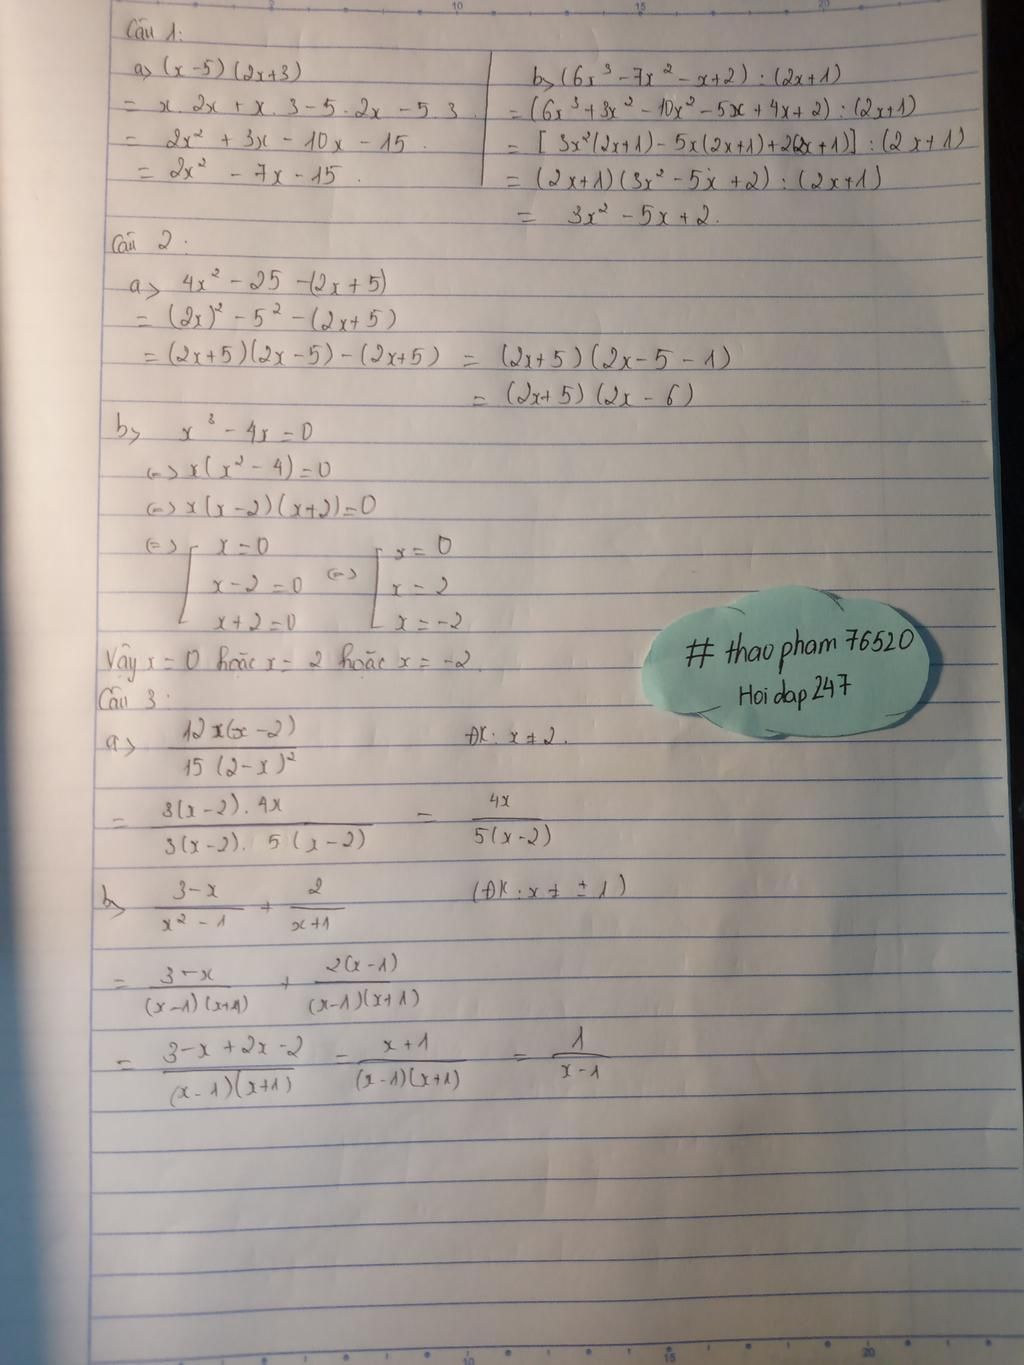 Câu 1:
a> (x-5) (2x+3)
= x. 2x + x. 3 - 5. 2x - 5.3
= 2x² + 3x - 10x - 15.
= 2x² - 7x - 15.
b> (6x³ - 7x² - x+2) : (2x+1)
= (6x³ + 3x² - 10x² - 5x + 4x + 2) : (2x+1)
= [3x²(2x+1) - 5x(2x+1) + 2(2x+1)] : (2x+1)
= (2x+1) (3x² - 5x + 2) : (2x+1)
= 3x² - 5x + 2.
Câu 2:
a> 4x² - 25 - (2x+5)
= (2x)² - 5² - (2x+5)
= (2x+5)(2x-5) - (2x+5) = (2x+5) (2x-5-1)
= (2x+5) (2x-6)
b> x³ - 4x = 0
<=> x(x² - 4) = 0
<=> x(x-2)(x+2) = 0
<=> [ x = 0 <=> [ x = 0
x-2 = 0 x = 2
x+2 = 0 x = -2
Vậy x = 0 hoặc x = 2 hoặc x = -2.
# thao pham 76520
Hoi dap 247
Câu 3:
a> 12x(x-2) / 15(2-x)² ĐK: x ≠ 2.
= 3(x-2). 4x / 3(x-2). 5(x-2) = 4x / 5(x-2)
b> 3-x / x²-1 + 2 / x+1 (ĐK: x ≠ ±1)
= 3-x / (x-1)(x+1) + 2(x-1) / (x-1)(x+1)
= 3-x+2x-2 / (x-1)(x+1) = x+1 / (x-1)(x+1) = 1 / x-1